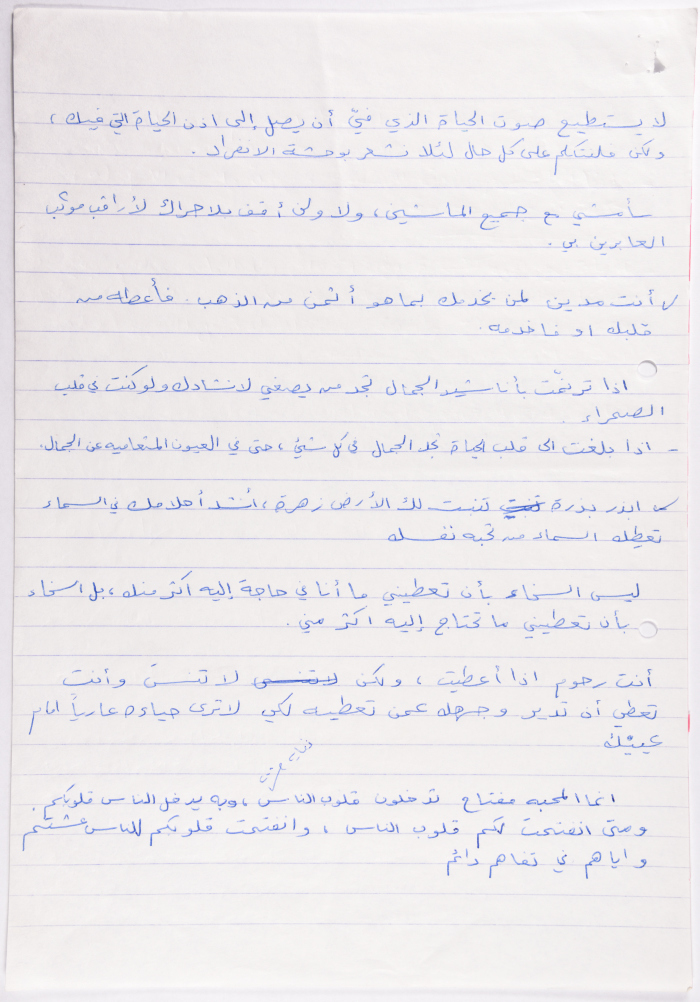 لا يستطيع صوت الحياة الذي فيّ أن يصل إلى اذن الحياة التي فيك ،
ولكن فلنتكلم على كل حال لئلا نشعر بوحشة الانفراد .
سأمشي مع جميع الماشين، ولا ولن أقف بلا حراك لأراقب موكب
العابرين بي .
أنت مدين لمن يخدمك بما هو أثمن من الذهب . فأعطه من
قلبك او فاخدمه .
اذا ترنمّت بأناشيد الجمال تجد من يصغي لانشادك ولو كنت في قلب
الصحراء .
- اذا بلغت الى قلب الحياة تجد الجمال في كل شيء ، حتى في العيون المتعاميه عن الجمال.
ابذر بذرة تنبت لك الأرض زهرة ، أنشد أحلامك في السماء
تعطِك السماء من تحبه نفسك
ليس السخاء بأن تعطيني ما أنا في حاجة إليه اكثر منك ، بل السخاء
بأن تعطيني ما تحتاج إليه اكثر مني .
أنت رحوم اذا أعطيت ، ولكن لا تنسَ وأنت
تعطي أن تدير وجهك عمن تعطيه لكي لا ترى حياءه عارياً امام
عينيْك
انما المحبه مفتاح تدخلون قلوب الناس ، وبه يدخل الناس قلوبكم .
ومتى انفتحت لكم قلوب الناس ، وانفتحت قلوبكم للناس عشتم
واياهم في تفاهم دائم